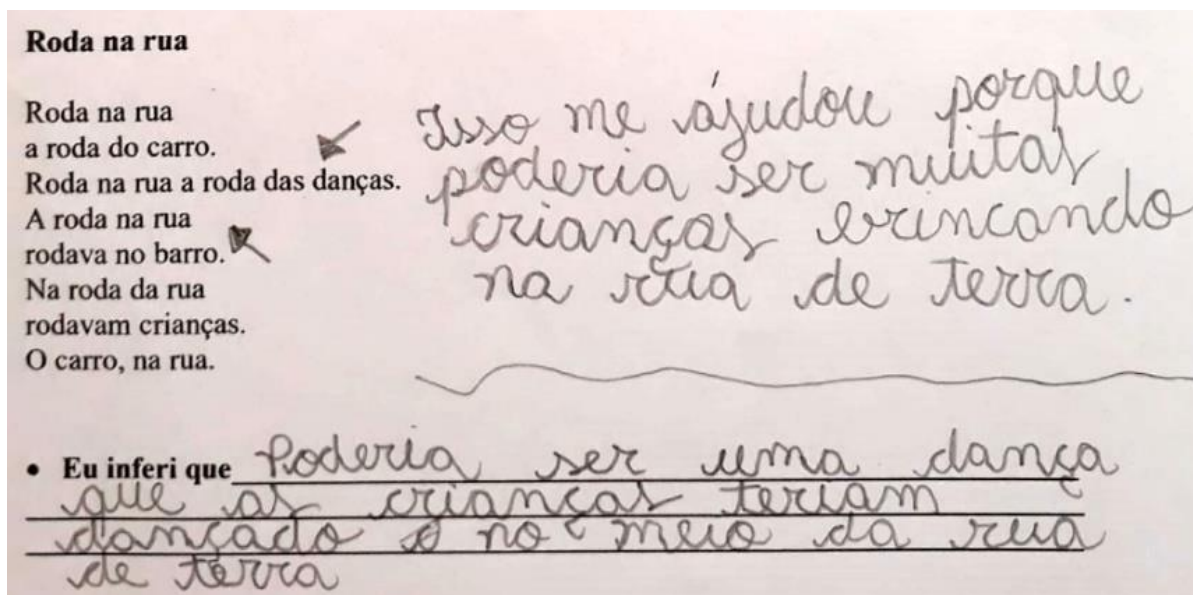 Roda na rua
Roda na rua
a roda do carro.
Roda na rua a roda das danças.
A roda na rua
rodava no barro.
Na roda da rua
rodavam crianças.
O carro, na rua.
Isso me ájudou porque
poderia ser muitas
crianças brincando
na rua de terra.
• Eu inferi que Poderia ser uma dança
que as crianças teriam
dançado no meio da rua
de terra